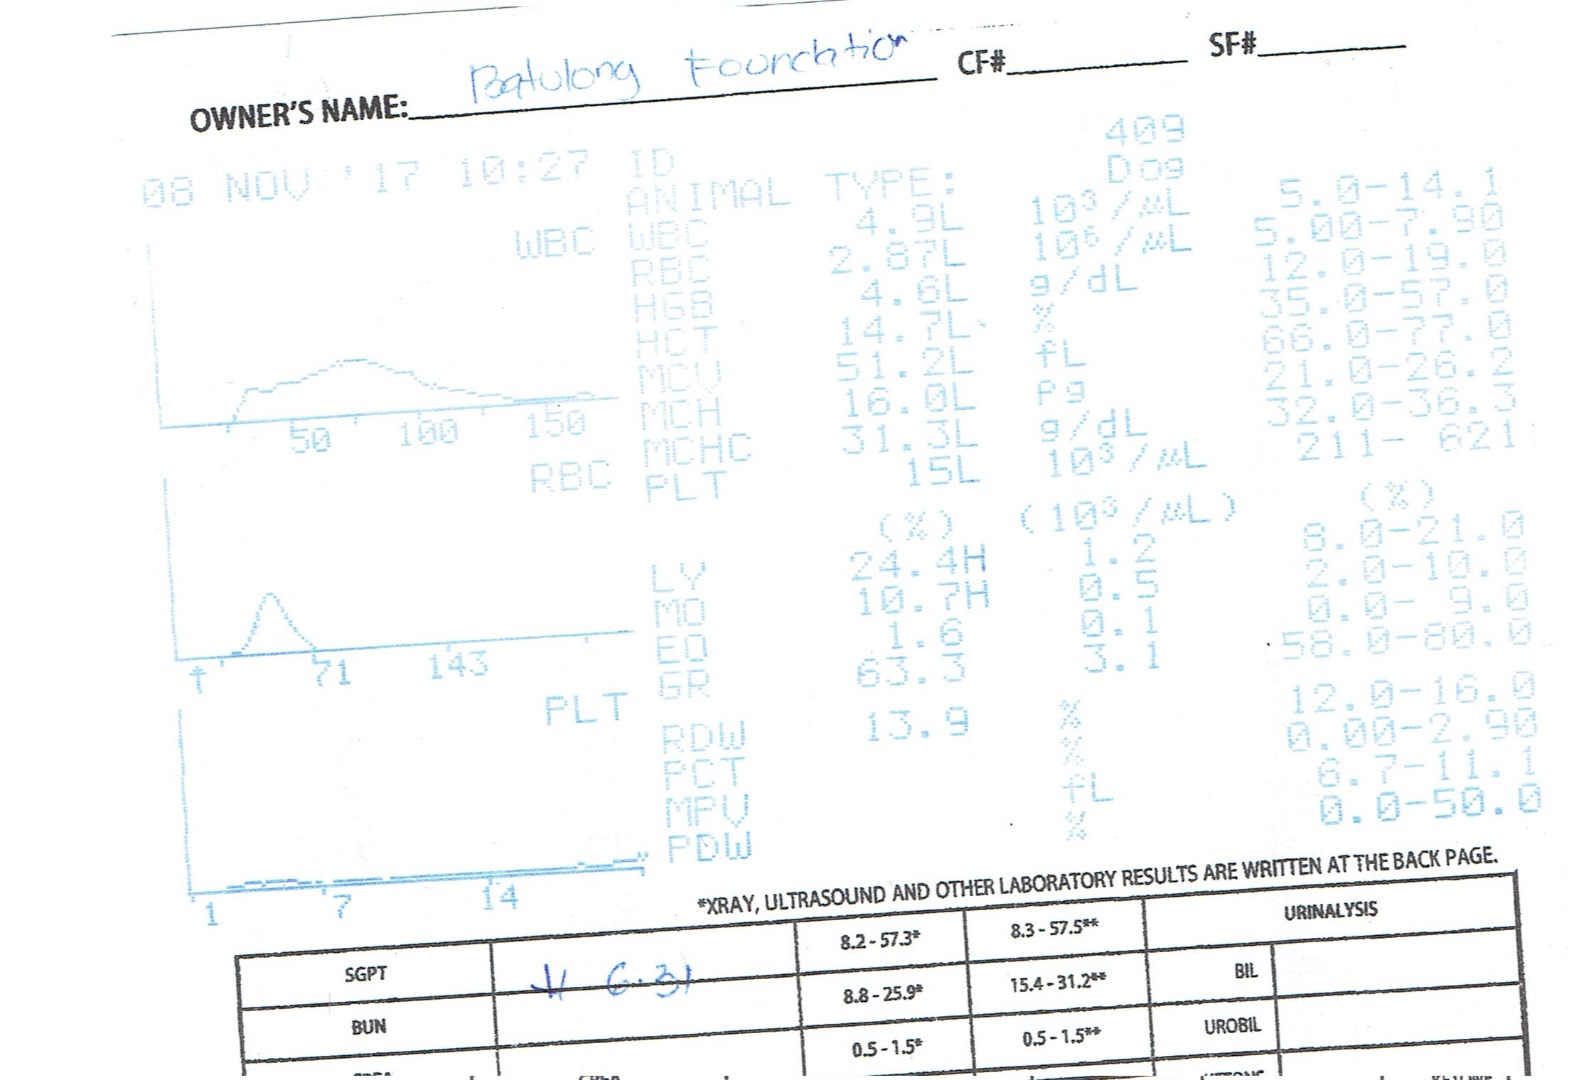 OWNER'S NAME: Batulong Foundation CF# SF#
08 NOV '17 10:27 ID 409
ANIMAL TYPE: Dog
WBC 4.9L 10³/µL 5.0-14.1
RBC 2.87L 10⁶/µL 5.00-7.90
HGB 4.6L g/dL 12.0-19.0
HCT 14.7L % 35.0-57.0
MCV 51.2L fL 66.0-77.0
MCH 16.0L Pg 21.0-26.2
MCHC 31.3L g/dL 32.0-36.3
PLT 15L 10³/µL 211- 621
(%) (10³/µL) (%)
LY 24.4H 1.2 8.0-21.0
MO 10.7H 0.5 2.0-10.0
EO 1.6 0.1 0.0- 9.0
GR 63.3 3.1 58.0-80.0
RDW 13.9 % 12.0-16.0
PCT % 0.00-2.90
MPV fL 6.7-11.1
PDW % 0.0-50.0
WBC
50 100 150
RBC
71 143
PLT
1 7 14
*XRAY, ULTRASOUND AND OTHER LABORATORY RESULTS ARE WRITTEN AT THE BACK PAGE.
SGPT 6.31 8.2 - 57.3* 8.3 - 57.5** URINALYSIS
BUN 8.8 - 25.9* 15.4 - 31.2** BIL
0.5 - 1.5* 0.5 - 1.5** UROBIL